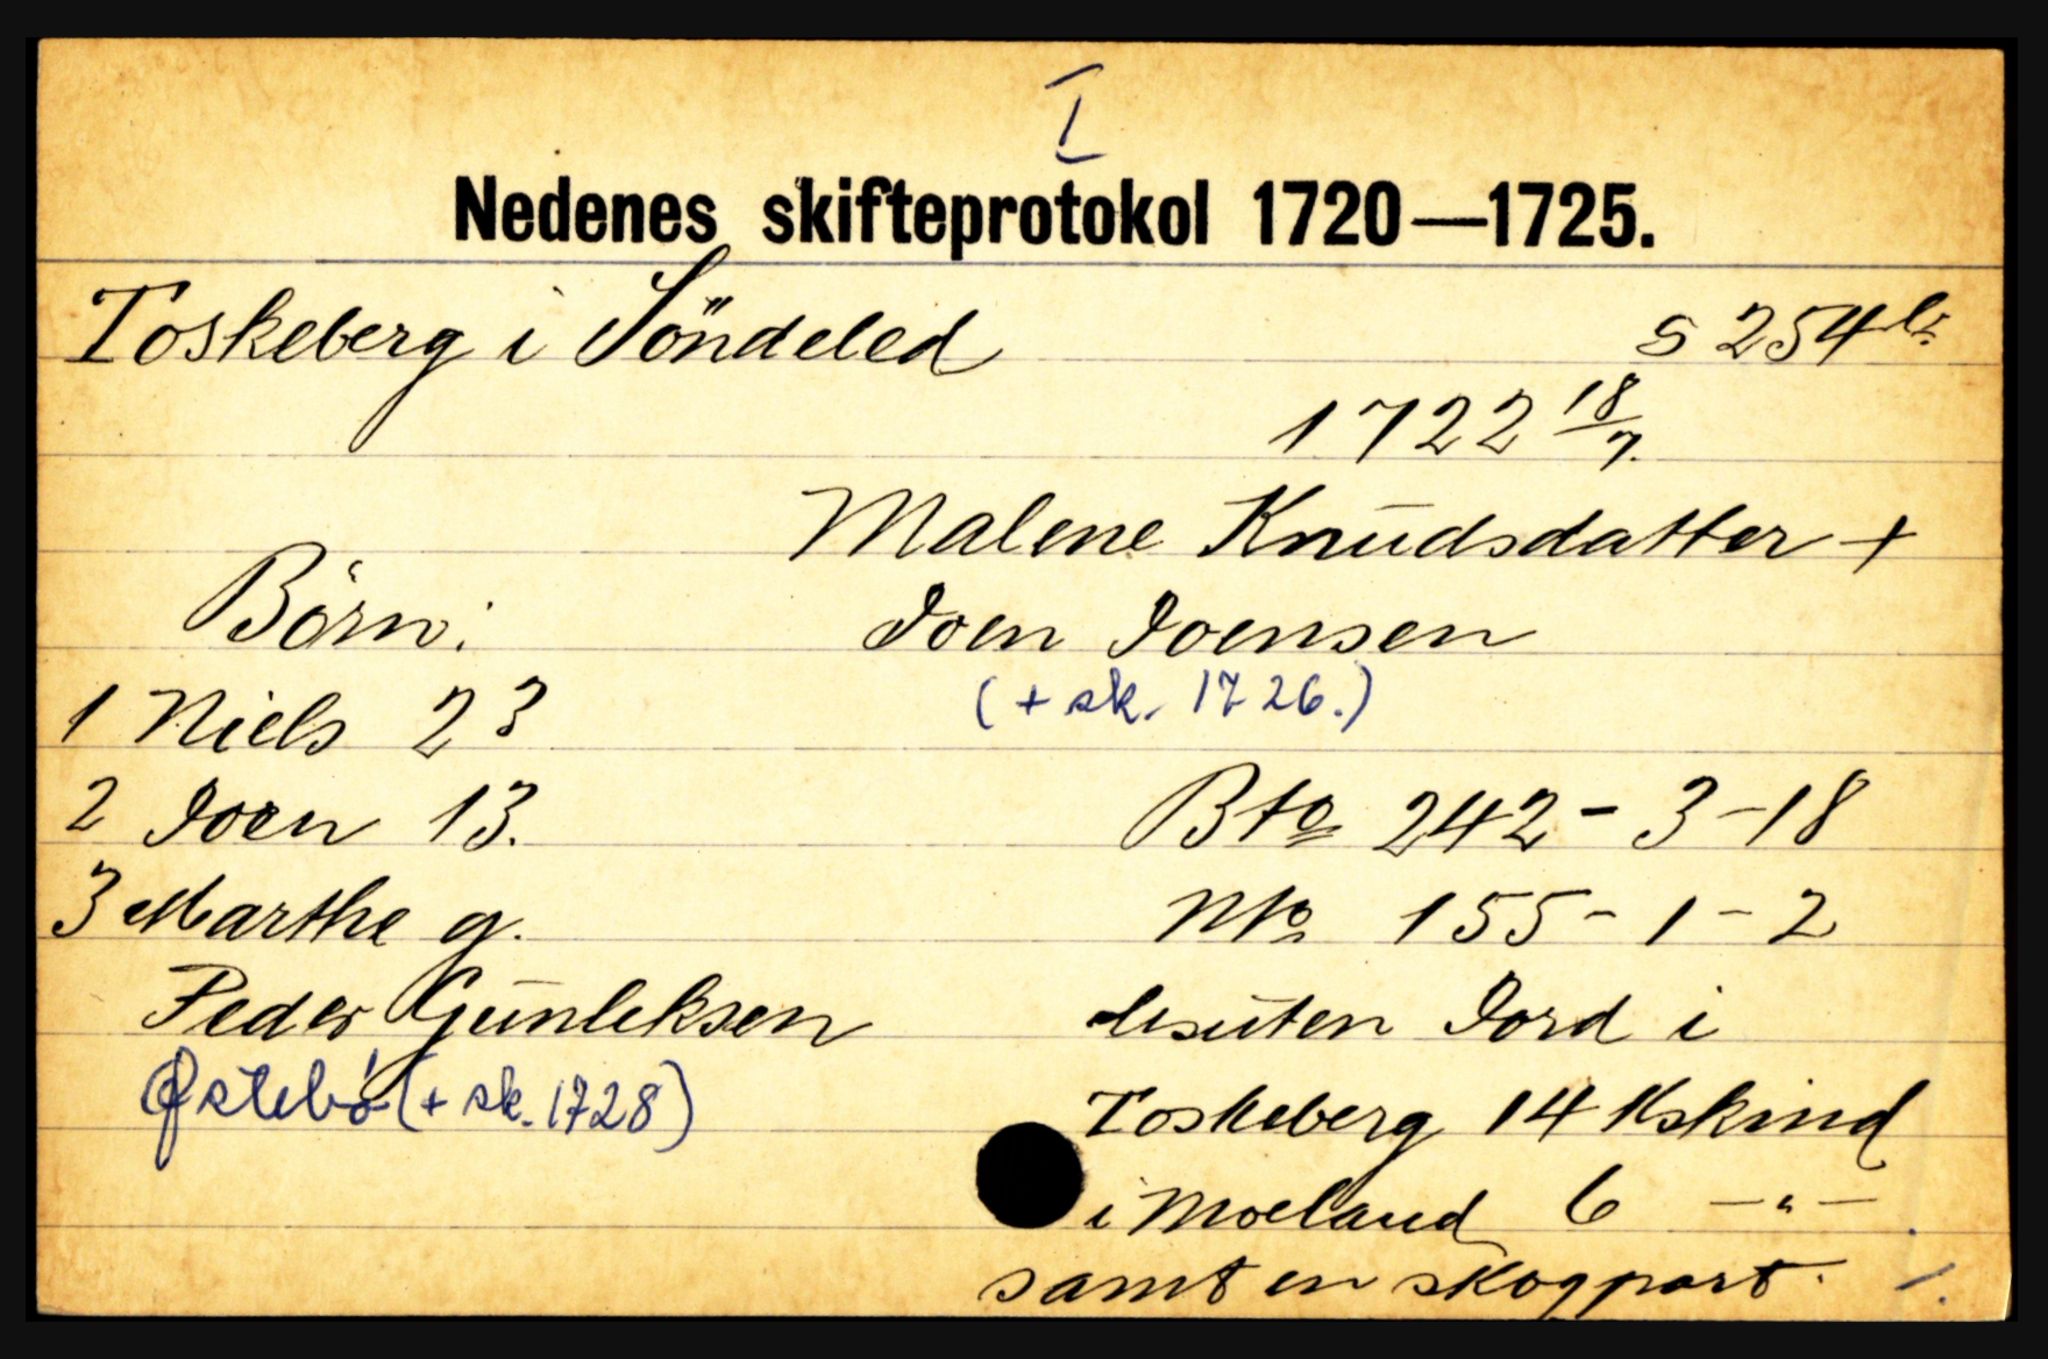 I
Nedenes skifteprotokol 1720—1725.
Toskeberg i Söndeled S 254 b.
1722 18/7.
Malene Knudsdatter +
Joen Joensen
(+ sk. 1726.)
Börn:
1 Niels 23
2 Joen 13.
3 Marthe g.
Peder Gunleksen
Østebö (+ sk. 1728)
Bto 242 - 3 - 18
Nto 155 - 1 - 2
desuten Jord i
Toskeberg 14 Kskind
i Moeland 6 — " —
samt en skogpart. 1.